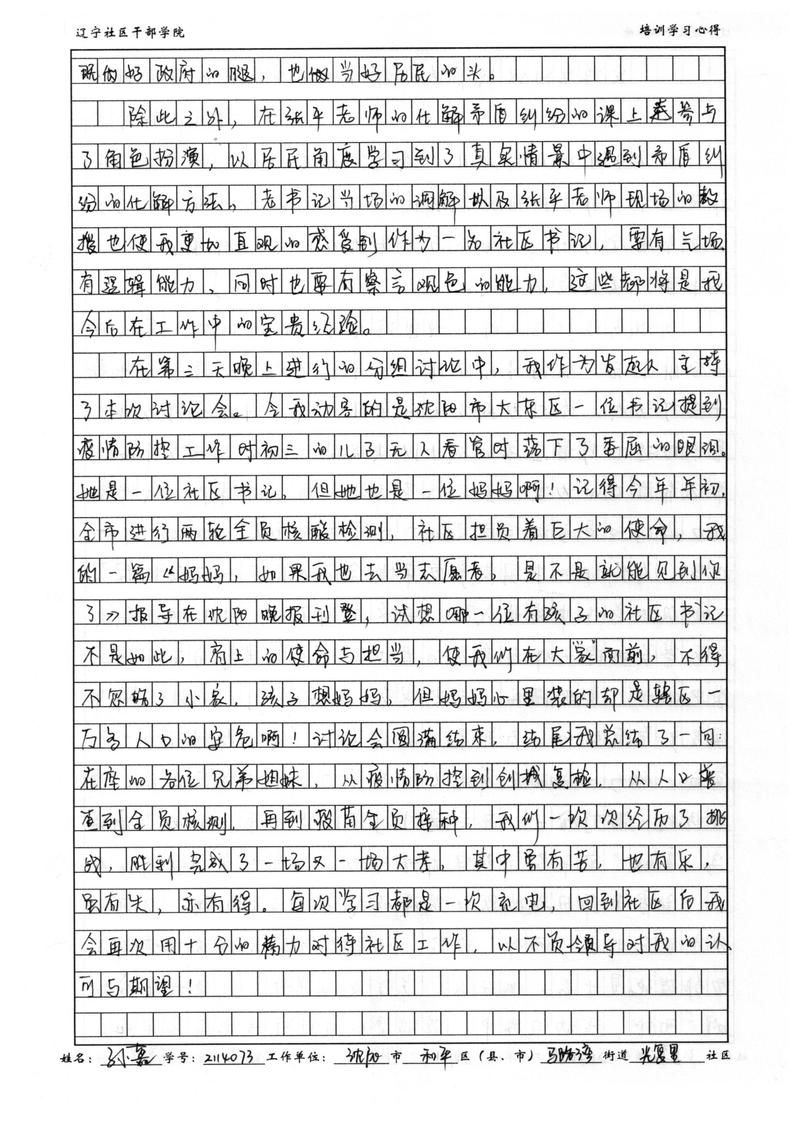 辽宁社区干部学院 培训学习心得
既做好政府的腿，也做当好居民的头。
除此之外，在张平老师的化解矛盾纠纷的课上参与
了角色扮演，以居民角度学习到了真实情景中遇到矛盾纠
纷的化解方法。老书记当场的调解以及张平老师现场的教
授也使我更加直观的感受到作为一名社区书记，要有气场
有逻辑能力、同时也要有察言观色的能力，这些都将是我
今后在工作中的宝贵经验。
在第三天晚上进行的分组讨论中，我作为发起人主持
了本次讨论会。令我动容的是沈阳市大东区一位书记提到
疫情防控工作时初三的儿子无人看管时落下了委屈的眼泪。
她是一位社区书记，但她也是一位妈妈啊！记得今年年初，
全市进行两轮全员核酸检测，社区担负着巨大的使命，我
的一篇《妈妈，如果我也去当志愿者，是不是就能见到你
了》报导在沈阳晚报刊登，试想哪一位有孩子的社区书记
不是如此，肩上的使命与担当，使我们在大家面前，不得
不忽略了小家，孩子想妈妈，但妈妈心里装的却是辖区一
万名人口的安危啊！讨论会圆满结束，结尾我总结了一句：
在座的各位兄弟姐妹，从疫情防控到创城复检，从人口普
查到全员核测，再到疫苗全员接种，我们一次次经历了挑
战，胜利完成了一场又一场大考，其中虽有苦，也有乐，
虽有失，亦有得。每次学习都是一次充电，回到社区后我
会再次用十分的精力对待社区工作，以不负领导对我的认
可与期望！
姓名：孙嘉 学号：2114073 工作单位：沈阳 市 和平 区（县、市） 马路湾 街道 光复里 社区